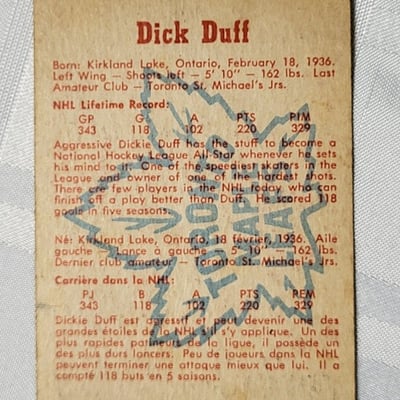 Dick Duff
Born: Kirkland Lake, Ontario, February 18, 1936.
Left Wing — Shoots left — 5' 10" — 162 lbs. Last
Amateur Club — Toronto St. Michael's Jrs.
NHL Lifetime Record:
GP G A PTS PIM
343 118 102 220 329
Aggressive Dickie Duff has the stuff to become a
National Hockey League All-Star whenever he sets
his mind to it. One of the speediest skaters in the
League and owner of one of the hardest shots.
There are few players in the NHL today who can
finish off a play better than Duff. He scored 118
goals in five seasons.
Né: Kirkland Lake, Ontario, 18 février, 1936. Aile
gauche — Lance à gauche — 5' 10" — 162 lbs.
Dernier club amateur — Toronto St. Michael's Jrs.
Carrière dans la NHL:
PJ B A PTS REM
343 118 102 220 329
Dickie Duff est agressif et peut devenir une des
grandes étoiles de la NHL s'il s'y applique. Un des
plus rapides patineurs de la ligue, il possède un
des plus durs lancers. Peu de joueurs dans la NHL
peuvent terminer une attaque mieux que lui. Il a
compté 118 buts en 5 saisons.
TORONTO
MAPLE
LEAFS